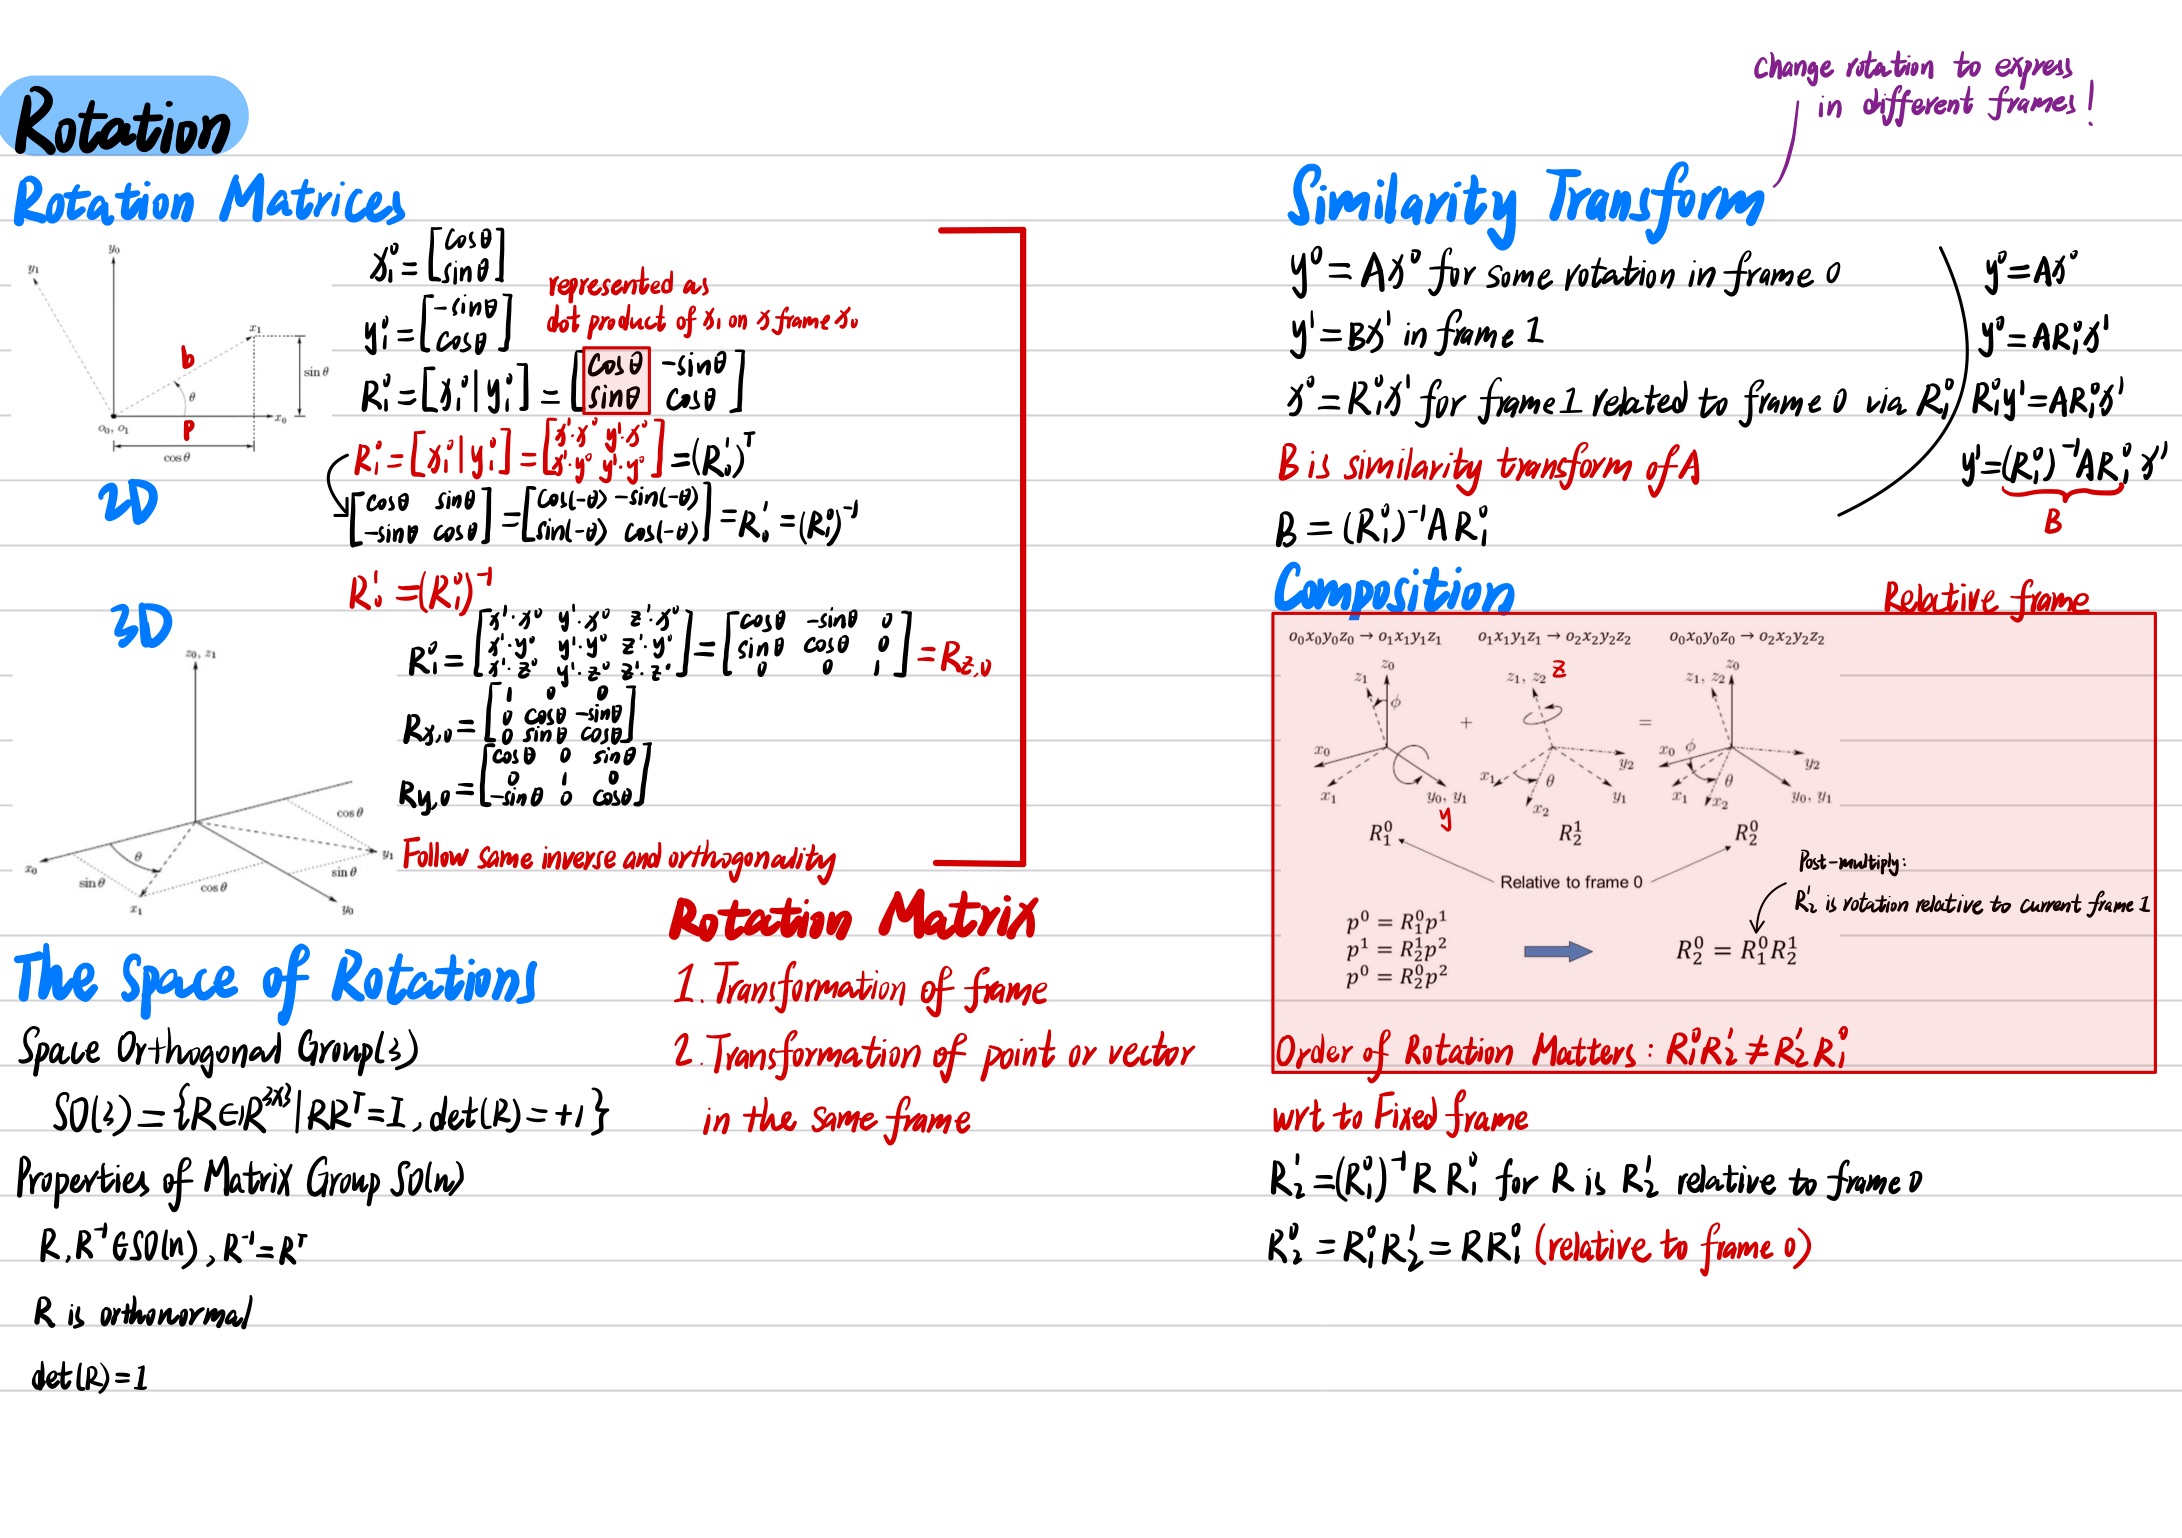 Rotation
Rotation Matrices
y₀
y₁
x₁
b
θ
sin θ
o₀, o₁
P
x₀
cos θ
2D
x₁⁰ = [cosθ; sinθ]
y₁⁰ = [-sinθ; cosθ]
represented as
dot product of x₁ on x frame x₀
R₁⁰ = [x₁⁰ | y₁⁰] = [cosθ -sinθ; sinθ cosθ]
R₁⁰ = [x₁⁰ | y₁⁰] = [x¹·x⁰ y¹·x⁰; x¹·y⁰ y¹·y⁰] = (R₀¹)ᵀ
[cosθ sinθ; -sinθ cosθ] = [cos(-θ) -sin(-θ); sin(-θ) cos(-θ)] = R₀¹ = (R₁⁰)⁻¹
R₀¹ = (R₁⁰)⁻¹
3D
z₀, z₁
cos θ
θ
y₁
x₀
sin θ
cos θ
sin θ
x₁
y₀
R₁⁰ = [x¹·x⁰ y¹·x⁰ z¹·x⁰; x¹·y⁰ y¹·y⁰ z¹·y⁰; x¹·z⁰ y¹·z⁰ z¹·z⁰] = [cosθ -sinθ 0; sinθ cosθ 0; 0 0 1] = R_z,θ
R_x,θ = [1 0 0; 0 cosθ -sinθ; 0 sinθ cosθ]
R_y,θ = [cosθ 0 sinθ; 0 1 0; -sinθ 0 cosθ]
Follow same inverse and orthogonality
Rotation Matrix
1. Transformation of frame
2. Transformation of point or vector
in the same frame
The Space of Rotations
Space Orthogonal Group(3)
SO(3) = {R∈ℝ³ˣ³ | RRᵀ = I, det(R) = +1}
Properties of Matrix Group SO(n)
R, R⁻¹ ∈ SO(n), R⁻¹ = Rᵀ
R is orthonormal
det(R) = 1
change rotation to express
in different frames!
Similarity Transform
y⁰ = Ax⁰ for some rotation in frame 0
y¹ = Bx¹ in frame 1
x⁰ = R₁⁰x¹ for frame 1 related to frame 0 via R₁⁰
B is similarity transform of A
B = (R₁⁰)⁻¹ A R₁⁰
y⁰ = Ax⁰
y⁰ = AR₁⁰x¹
R₁⁰y¹ = AR₁⁰x¹
y¹ = (R₁⁰)⁻¹AR₁⁰ x¹
B
Composition
Relative frame
o₀x₀y₀z₀ → o₁x₁y₁z₁ o₁x₁y₁z₁ → o₂x₂y₂z₂ o₀x₀y₀z₀ → o₂x₂y₂z₂
z₀
z₁
ϕ
x₀
x₁
y₀, y₁
y
+
z₁, z₂
z
y₂
x₁
θ
x₂
y₁
=
z₀
z₁, z₂
x₀
ϕ
y₂
θ
x₁
x₂
y₀, y₁
R₁⁰ R₂¹ R₂⁰
Relative to frame 0
Post-multiply:
R₂¹ is rotation relative to current frame 1
p⁰ = R₁⁰p¹
p¹ = R₂¹p²
p⁰ = R₂⁰p²
R₂⁰ = R₁⁰R₂¹
Order of Rotation Matters: R₁⁰R₂¹ ≠ R₂¹R₁⁰
wrt to Fixed frame
R₂¹ = (R₁⁰)⁻¹ R R₁⁰ for R is R₂¹ relative to frame 0
R₂⁰ = R₁⁰R₂¹ = RR₁⁰ (relative to frame 0)